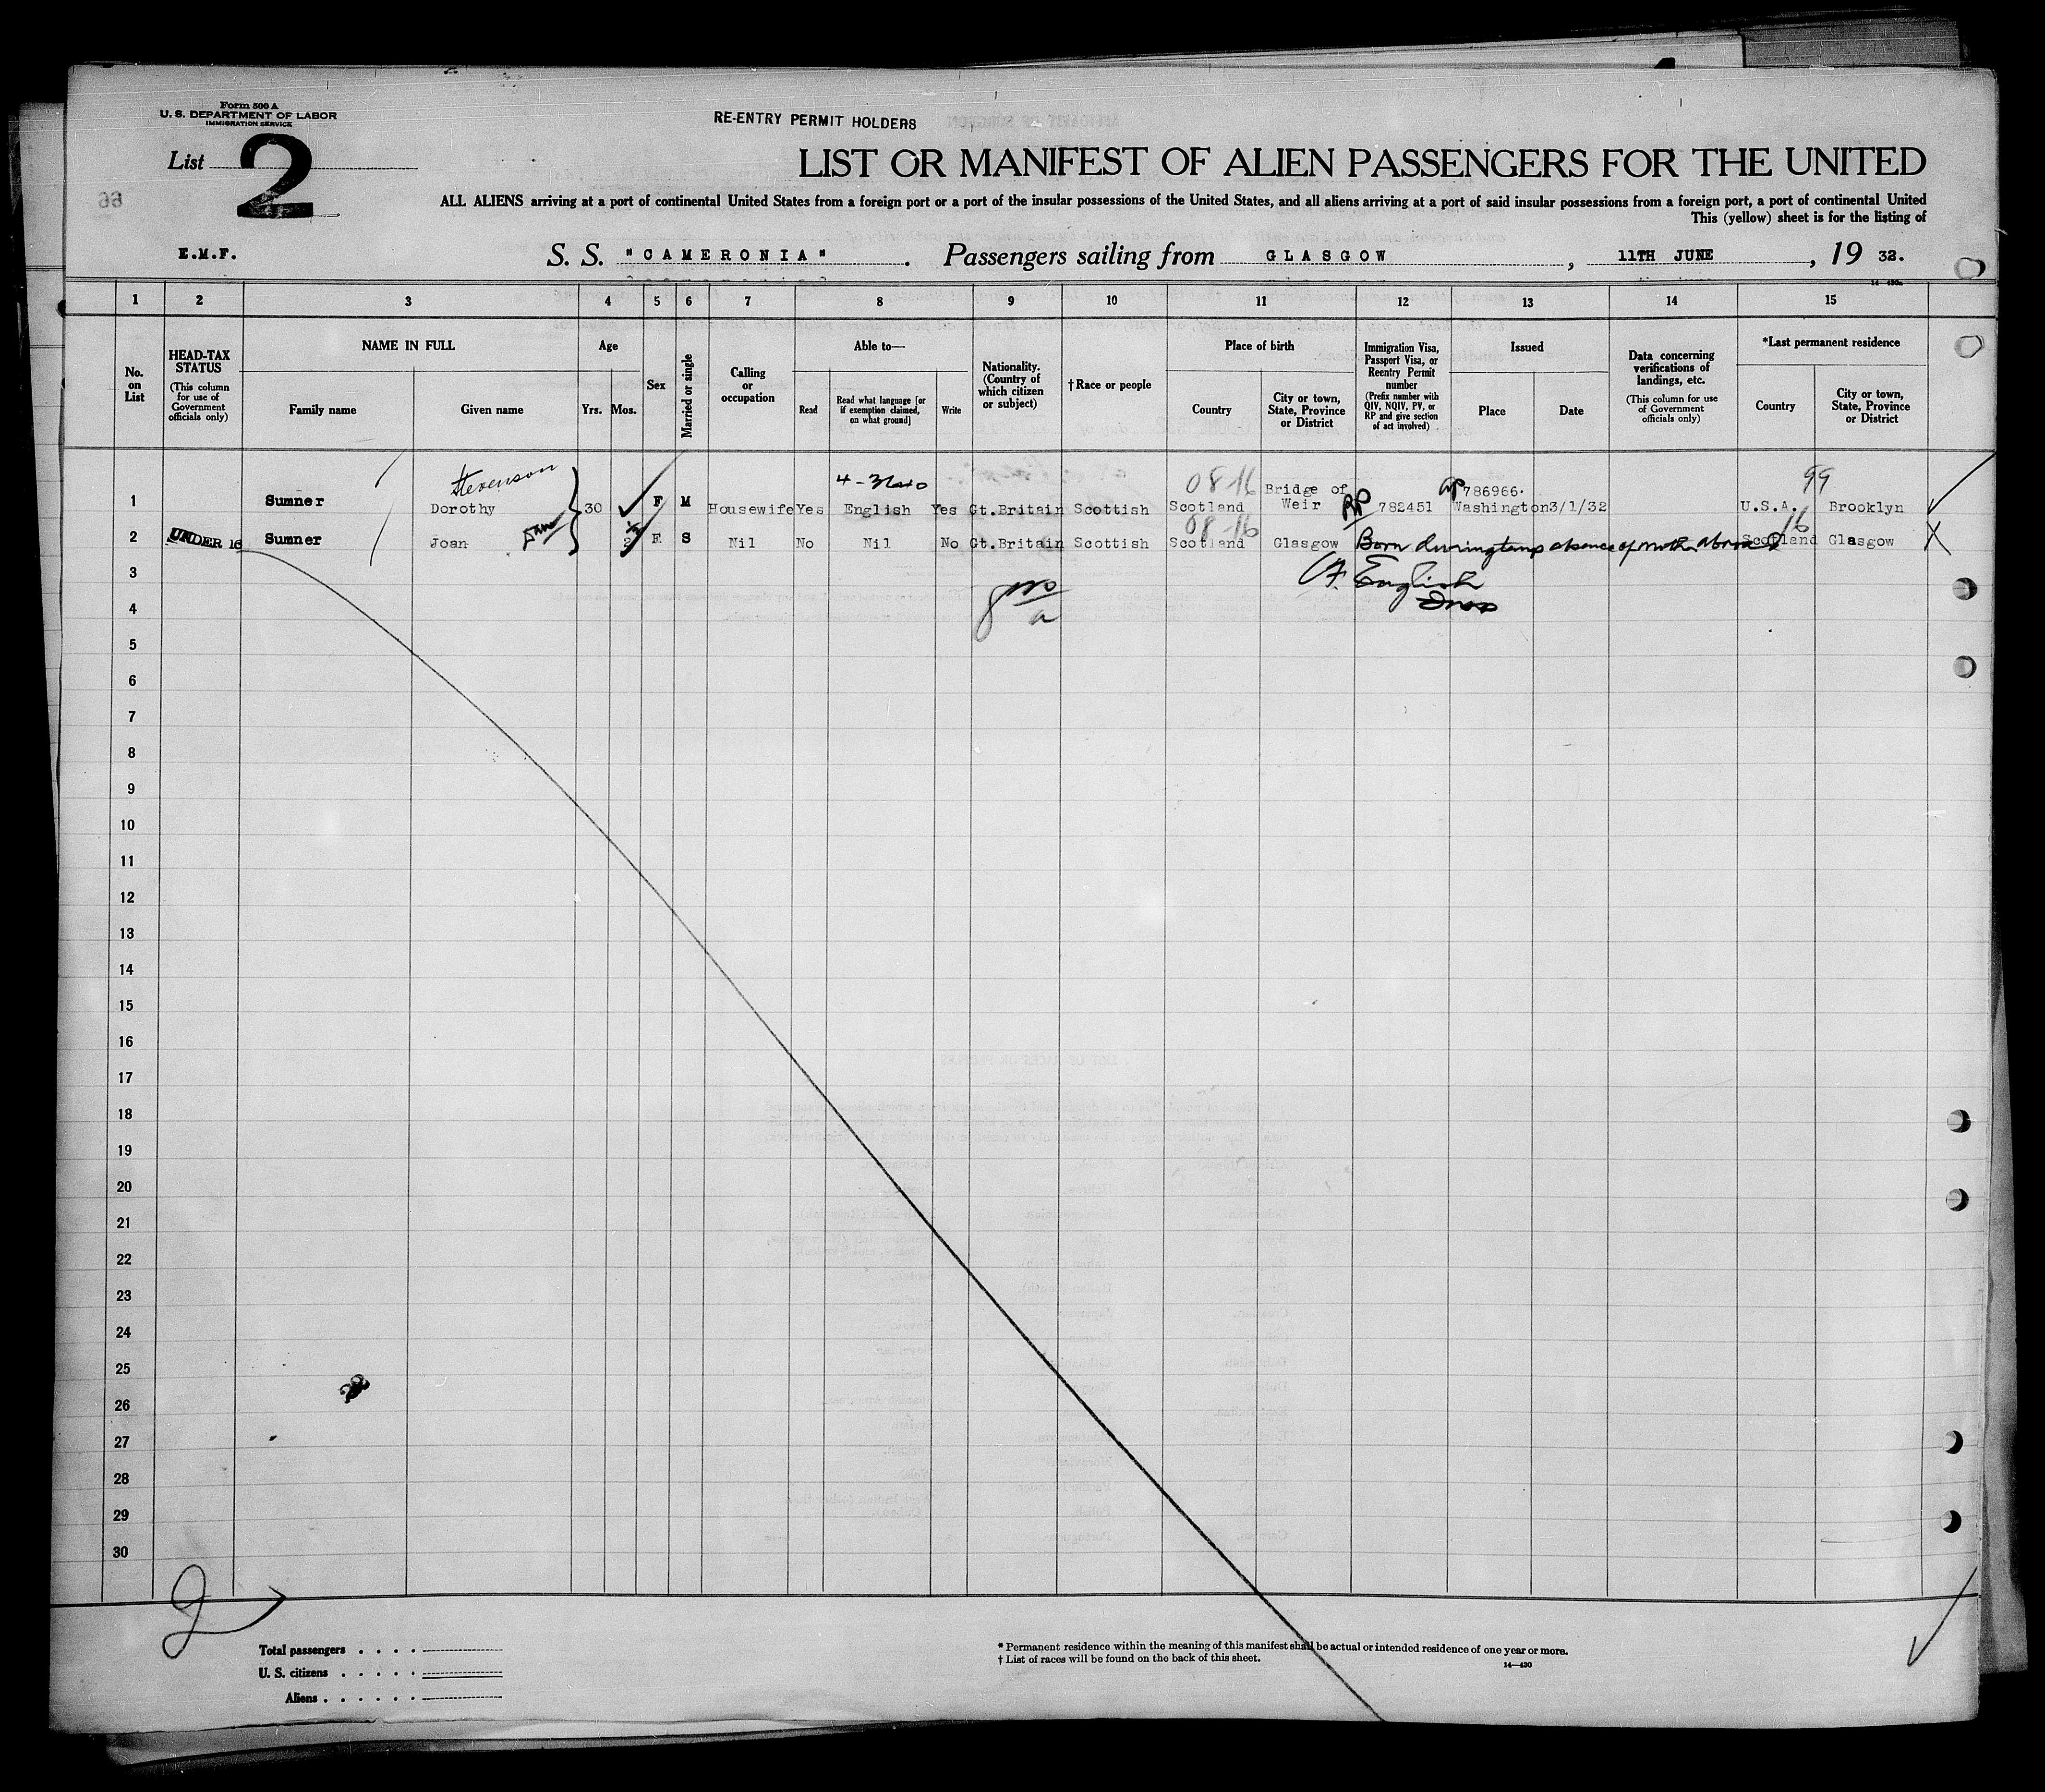 Form 500 A
U. S. DEPARTMENT OF LABOR
IMMIGRATION SERVICE
RE-ENTRY PERMIT HOLDERS
List 2
LIST OR MANIFEST OF ALIEN PASSENGERS FOR THE UNITED
ALL ALIENS arriving at a port of continental United States from a foreign port or a port of the insular possessions of the United States, and all aliens arriving at a port of said insular possessions from a foreign port, a port of continental United
This (yellow) sheet is for the listing of
E.M.F. S. S. "CAMERONIA". Passengers sailing from GLASGOW, 11TH JUNE, 19 32.
1 2 3 4 5 6 7 8 9 10 11 12 13 14 15
No. on List
HEAD-TAX STATUS (This column for use of Government officials only)
NAME IN FULL
Family name
Given name
Age
Yrs. Mos.
Sex
Married or single
Calling or occupation
Able to—
Read
Read what language [or if exemption claimed, on what ground]
Write
Nationality. (Country of which citizen or subject)
† Race or people
Place of birth
Country
City or town, State, Province or District
Immigration Visa, Passport Visa, or Reentry Permit number (Prefix number with QIV, NQIV, PV, or RP and give section of act involved)
Issued
Place
Date
Data concerning verifications of landings, etc. (This column for use of Government officials only)
*Last permanent residence
Country
City or town, State, Province or District
Stevenson
08-16
99
1 Sumner Dorothy 30 F M Housewife Yes English Yes Gt.Britain Scottish Scotland Bridge of Weir RP 782451 786966. Washington 3/1/32 U.S.A. Brooklyn
08-16
16
2 UNDER 16 Sumner Joan F S Nil No Nil No Gt.Britain Scottish Scotland Glasgow Born during temp absence of mother abroad Scotland Glasgow
3
English
4
5
6
7
8
9
10
11
12
13
14
15
16
17
18
19
20
21
22
23
24
25
26
27
28
29
30
Total passengers
U. S. citizens
Aliens
* Permanent residence within the meaning of this manifest shall be actual or intended residence of one year or more.
† List of races will be found on the back of this sheet.
14—420